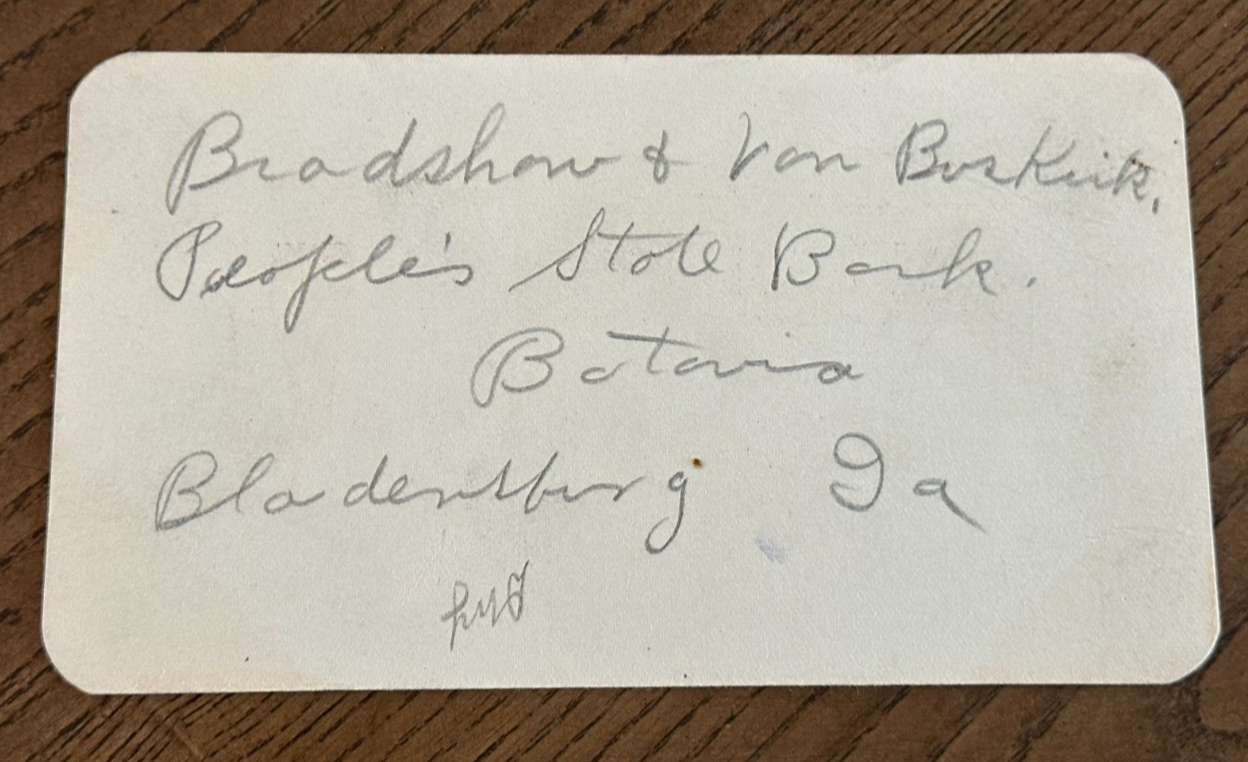 Bradshaw & Van Buskirk.
People's State Bank.
Batavia
Bladensburg Ia